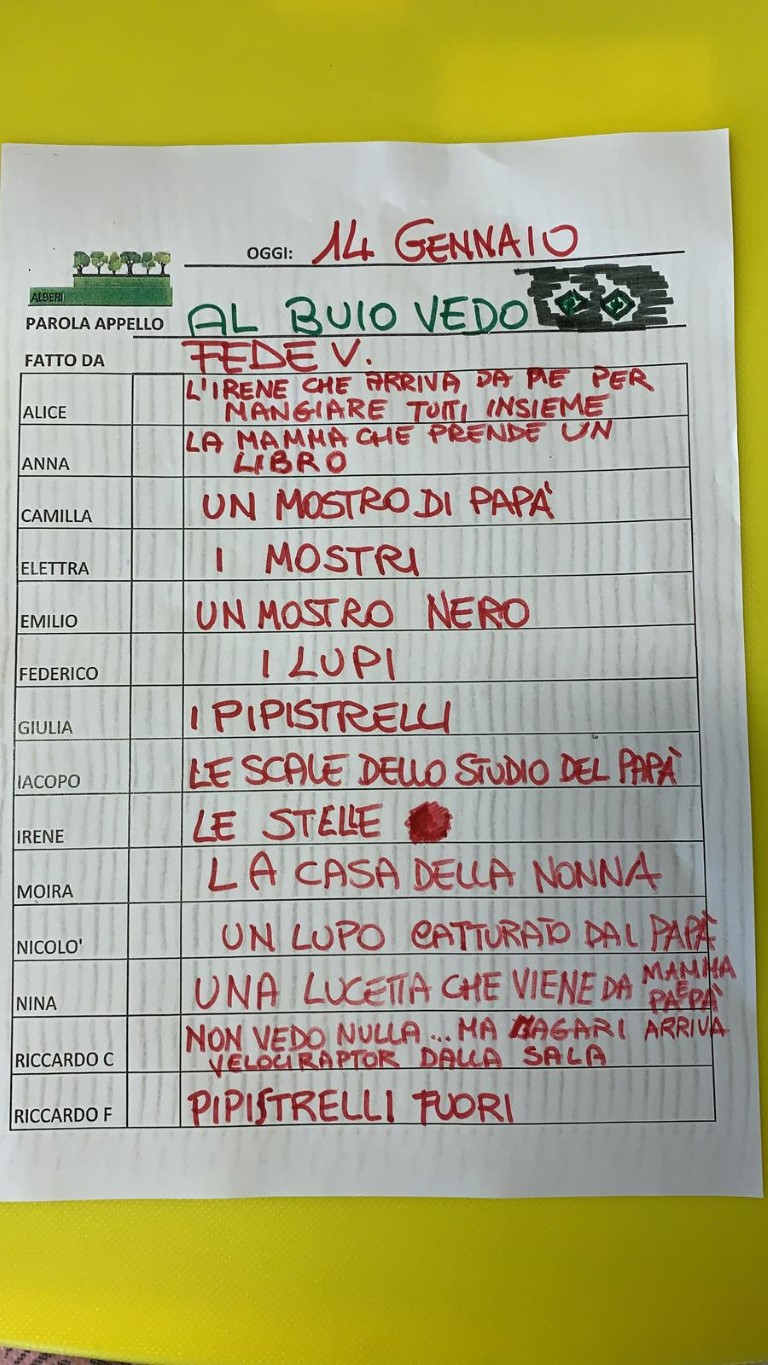 OGGI: 14 GENNAIO
ALBERI
PAROLA APPELLO AL BUIO VEDO
FATTO DA FEDE V.
ALICE L'IRENE CHE ARRIVA DA ME PER
MANGIARE TUTTI INSIEME
ANNA LA MAMMA CHE PRENDE UN
LIBRO
CAMILLA UN MOSTRO DI PAPÀ
ELETTRA I MOSTRI
EMILIO UN MOSTRO NERO
FEDERICO I LUPI
GIULIA I PIPISTRELLI
IACOPO LE SCALE DELLO STUDIO DEL PAPÀ
IRENE LE STELLE
MOIRA LA CASA DELLA NONNA
NICOLO' UN LUPO CATTURATO DAL PAPÀ
NINA UNA LUCETTA CHE VIENE DA MAMMA
E PAPÀ
RICCARDO C NON VEDO NULLA... MA MAGARI ARRIVA
VELOCIRAPTOR DALLA SALA
RICCARDO F PIPISTRELLI FUORI